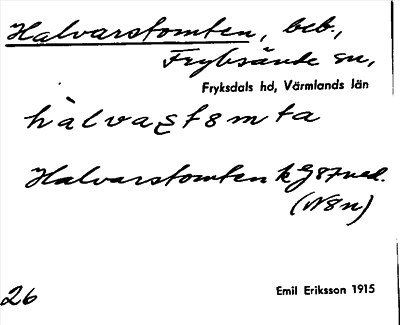 Halvarstomten, beb.,
Fryksände sn,
Fryksdals hd, Värmlands län
hàlvaʂtomta
Halvarstomten k G87ned.
(N8n)
26 Emil Eriksson 1915